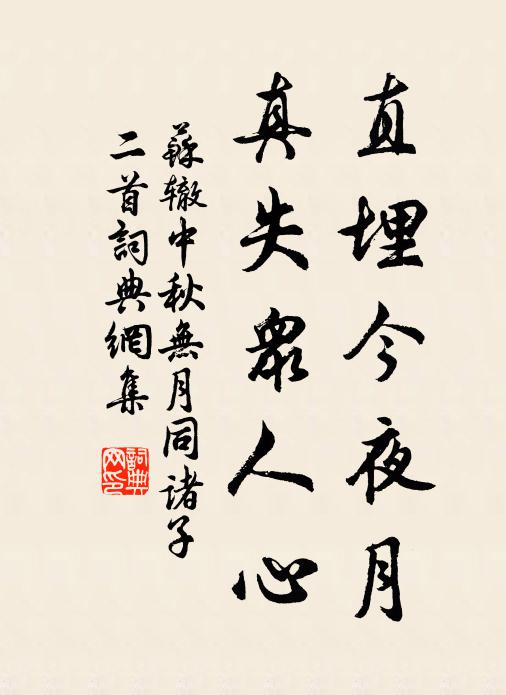 直埋今夜月
真失眾人心
蘇轍中秋無月同諸子
二首詞典網集
詞典网印